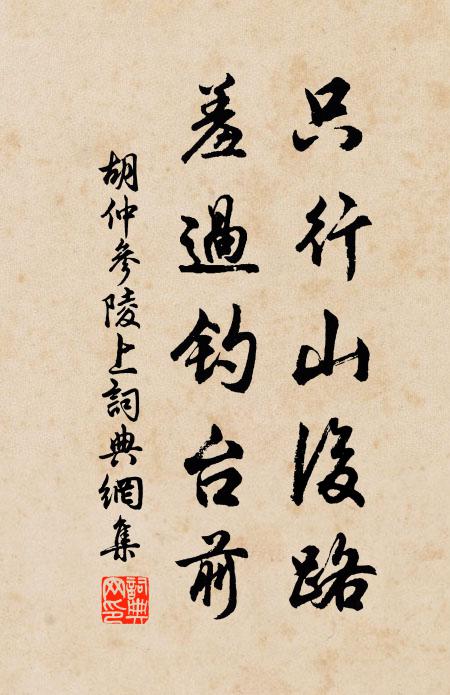 只行山後路
羞過钓台前
胡仲參陵上詞典網集
詞典
网印